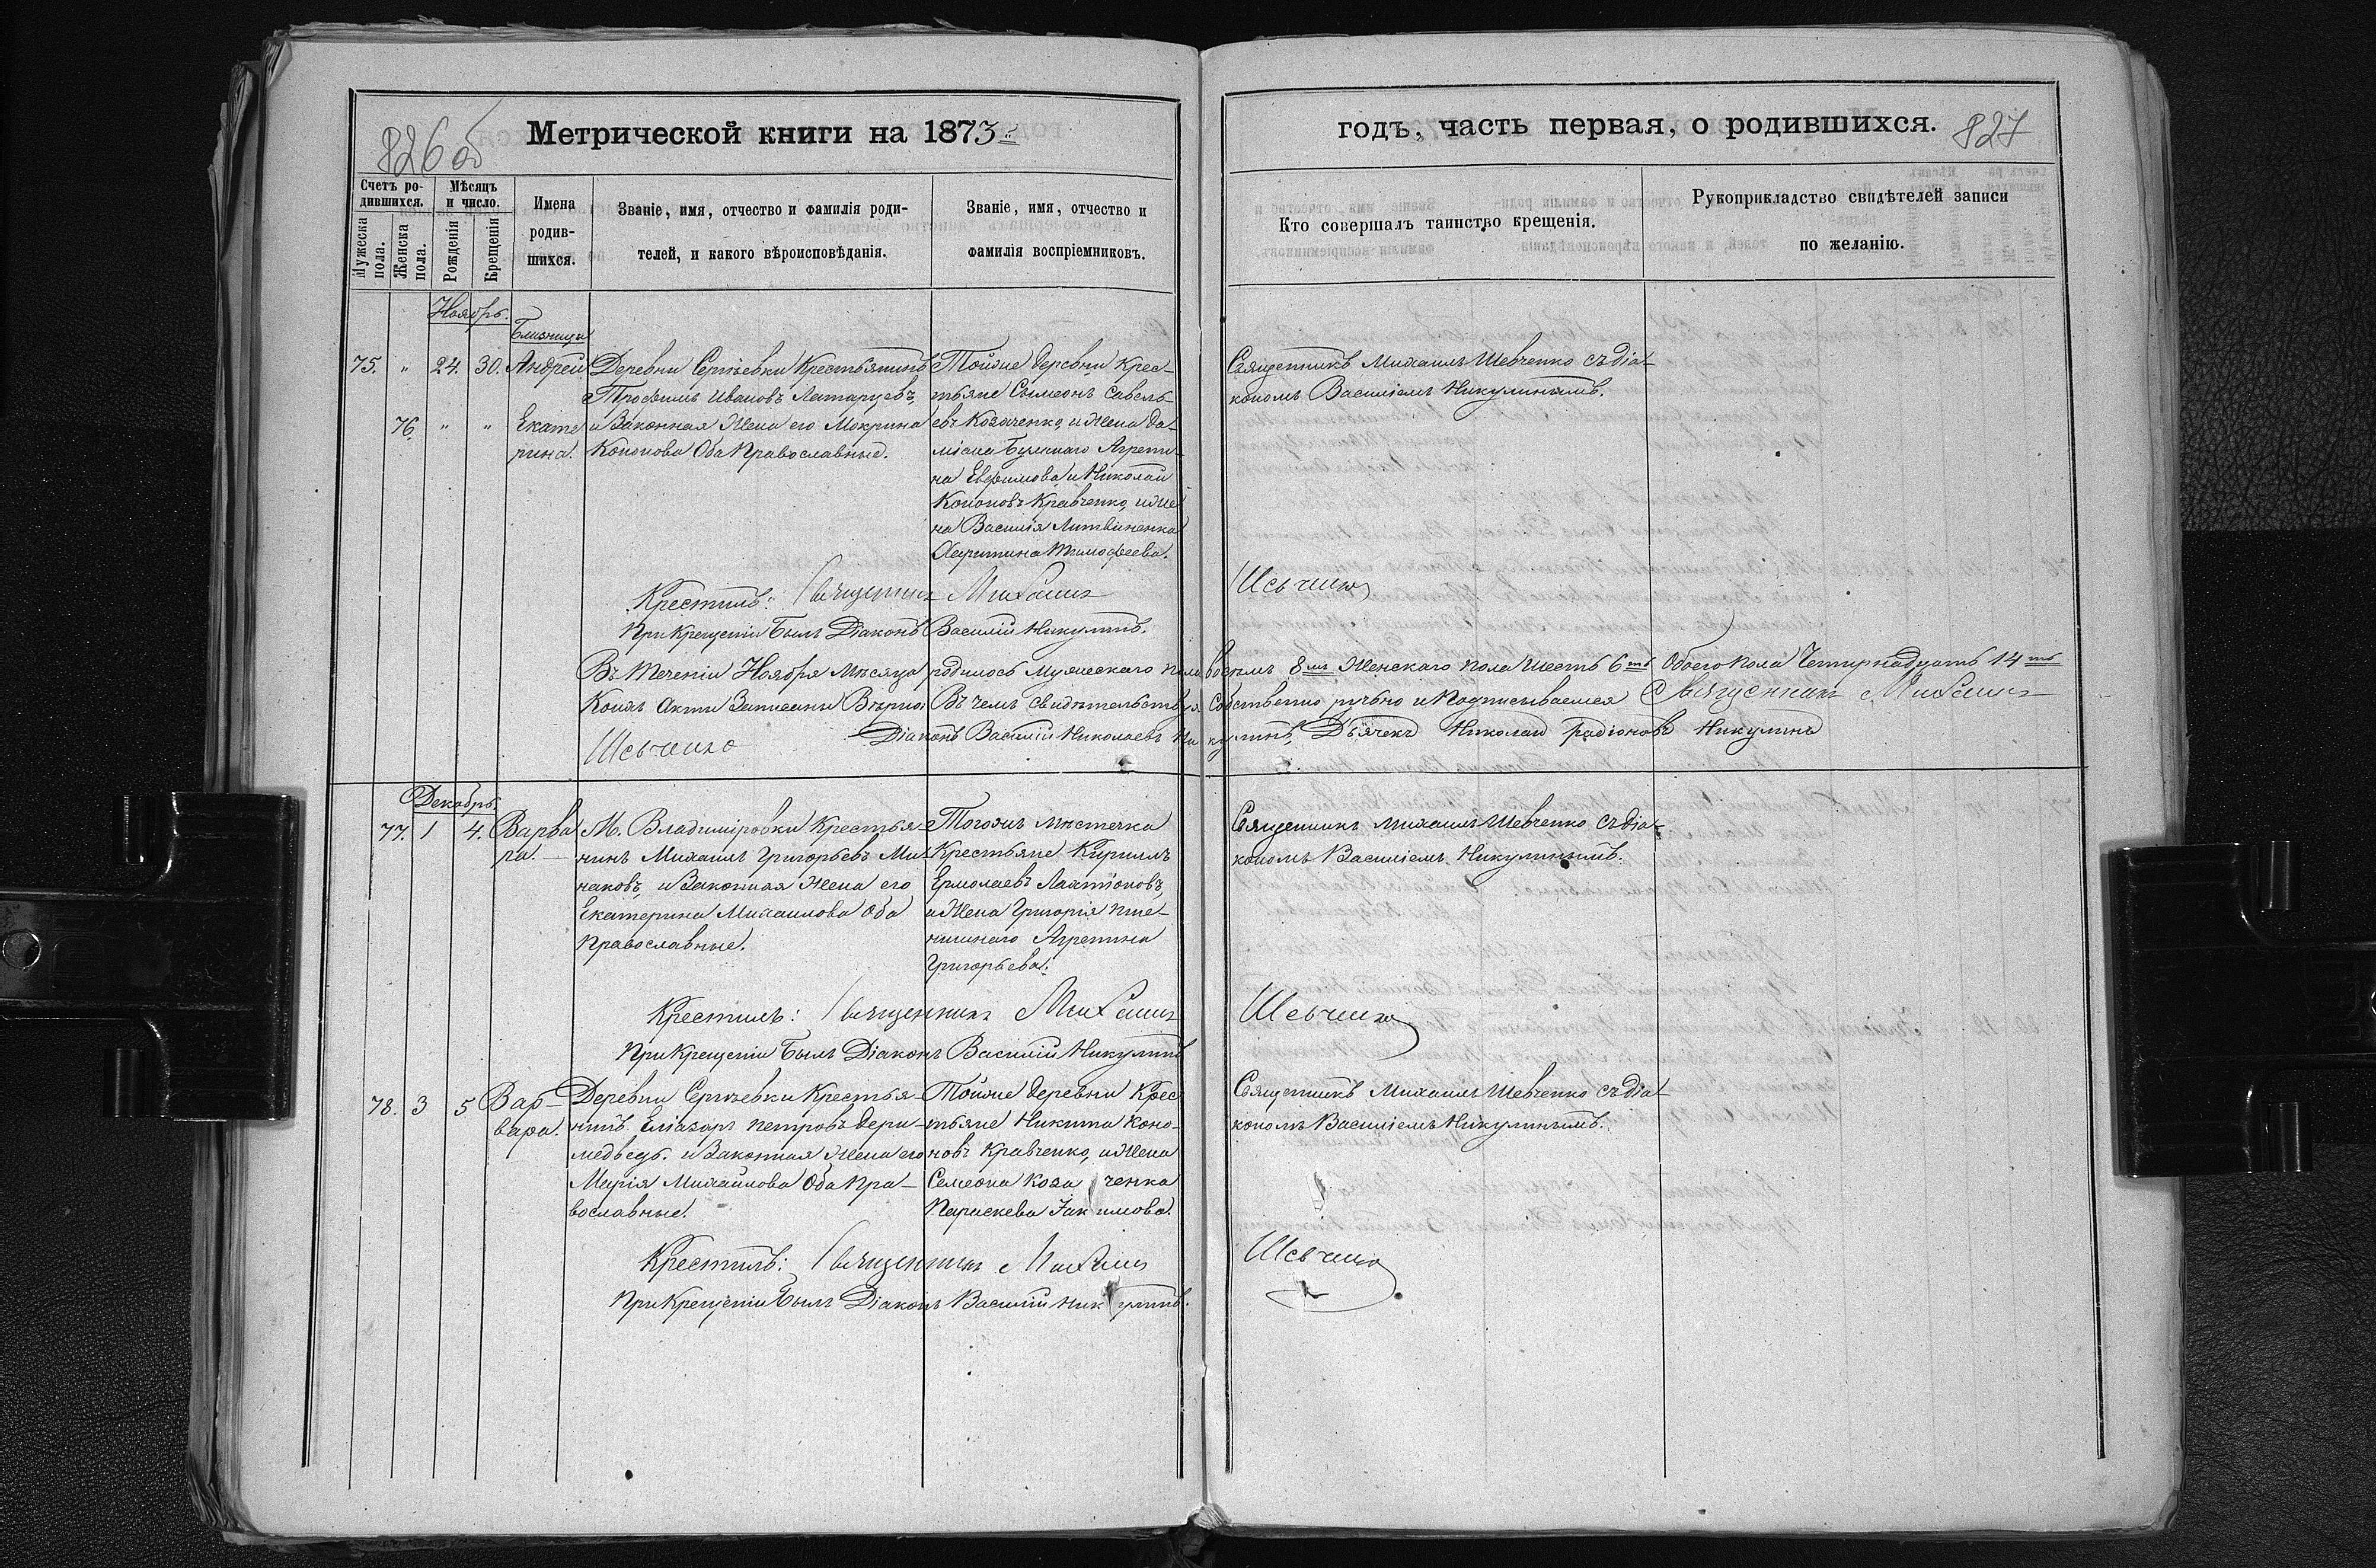 826 об
Метрической книги на 1873
годъ, часть первая, о родившихся.
827
Счетъ ро-
дившихся.
Мужеска
пола.
Женска
пола.
Мѣсяцъ
и число.
Рожденія
Крещенія
Имена
родив-
шихся.
Званіе, имя, отчество и фамилія роди-
телей, и какого вѣроисповѣданія.
Званіе, имя, отчество и
фамилія воспріемниковъ.
Кто совершалъ таинство крещенія.
Рукоприкладство свидѣтелей записи
по желанію.
Ноябрь.
Близнецы
75. " 24. 30. Андрей
76. " " Екате
рина.
Деревни Сергѣевки Крестьянинъ
Трофимъ Ивановъ
и Законная Жена его Мокрина
Кононова Оба Православные.
Тойже деревни Крес-
тьяне Сѵмеонъ Савель-
евъ Козаченко, и Жена Да-
міана Агрепи-
на Евфимова и Николай
Кононовъ Кравченко, и же
на Василія Литвиненка
Харитина Тимофеева.
Священникъ Михаилъ Шевченко съ діа-
кономъ Василіемъ Никулинымъ.
Крестилъ: Священникъ Михаилъ Шевченко
При Крещеніи Былъ Діаконъ Василій Никулинъ.
Въ Теченіи Ноября Мѣсяца родилось Мужескаго пола восемь 8мь Женскаго пола Шесть 6ть Обоего пола Четырнадцать 14ть
Коихъ Акты Записаны Вѣрно Въ чемъ свидѣтельствуя Собственно ручно и Подписываемся Священникъ Михаилъ
Шевченко Діаконъ Василій Николаевъ Никулинъ, Дьячекъ Николай Радіоновъ Никулинъ
Декабрь.
77. 1 4. Варва
ра.
М. Владиміровки Крестья-
нинъ Михаилъ Григорьевъ Ми-
наковъ, и Законная Жена его
Екатерина Михаилова Оба
Православные.
Тогожъ мѣстечка
Крестьяне Кирилъ
Ермолаевъ Лахтіоновъ,
и Жена Григорія Пше-
ничнаго Агрепина
Григорьева.
Священникъ Михаилъ Шевченко съ діа-
кономъ Василіемъ Никулинымъ.
Крестилъ: Священникъ Михаилъ Шевченко
При Крещеніи Былъ Діаконъ Василій Никулинъ
78. 3 5 Вар-
вара.
Деревни Сергѣевки Крестья-
нинъ Еліазаръ Петровъ Дери-
медведь. и Законная Жена его
Марія Михайлова Оба Пра-
вославные.
Тойже деревни Крес
тьяне Никита Коно-
новъ Кравченко, и Жена
Семеона Козаченка
Параскева Іакимова.
Священникъ Михаилъ Шевченко съ діа-
кономъ Василіемъ Никулинымъ.
Крестилъ: Священникъ Михаилъ Шевченко
При Крещеніи Былъ Діаконъ Василій Никулинъ.